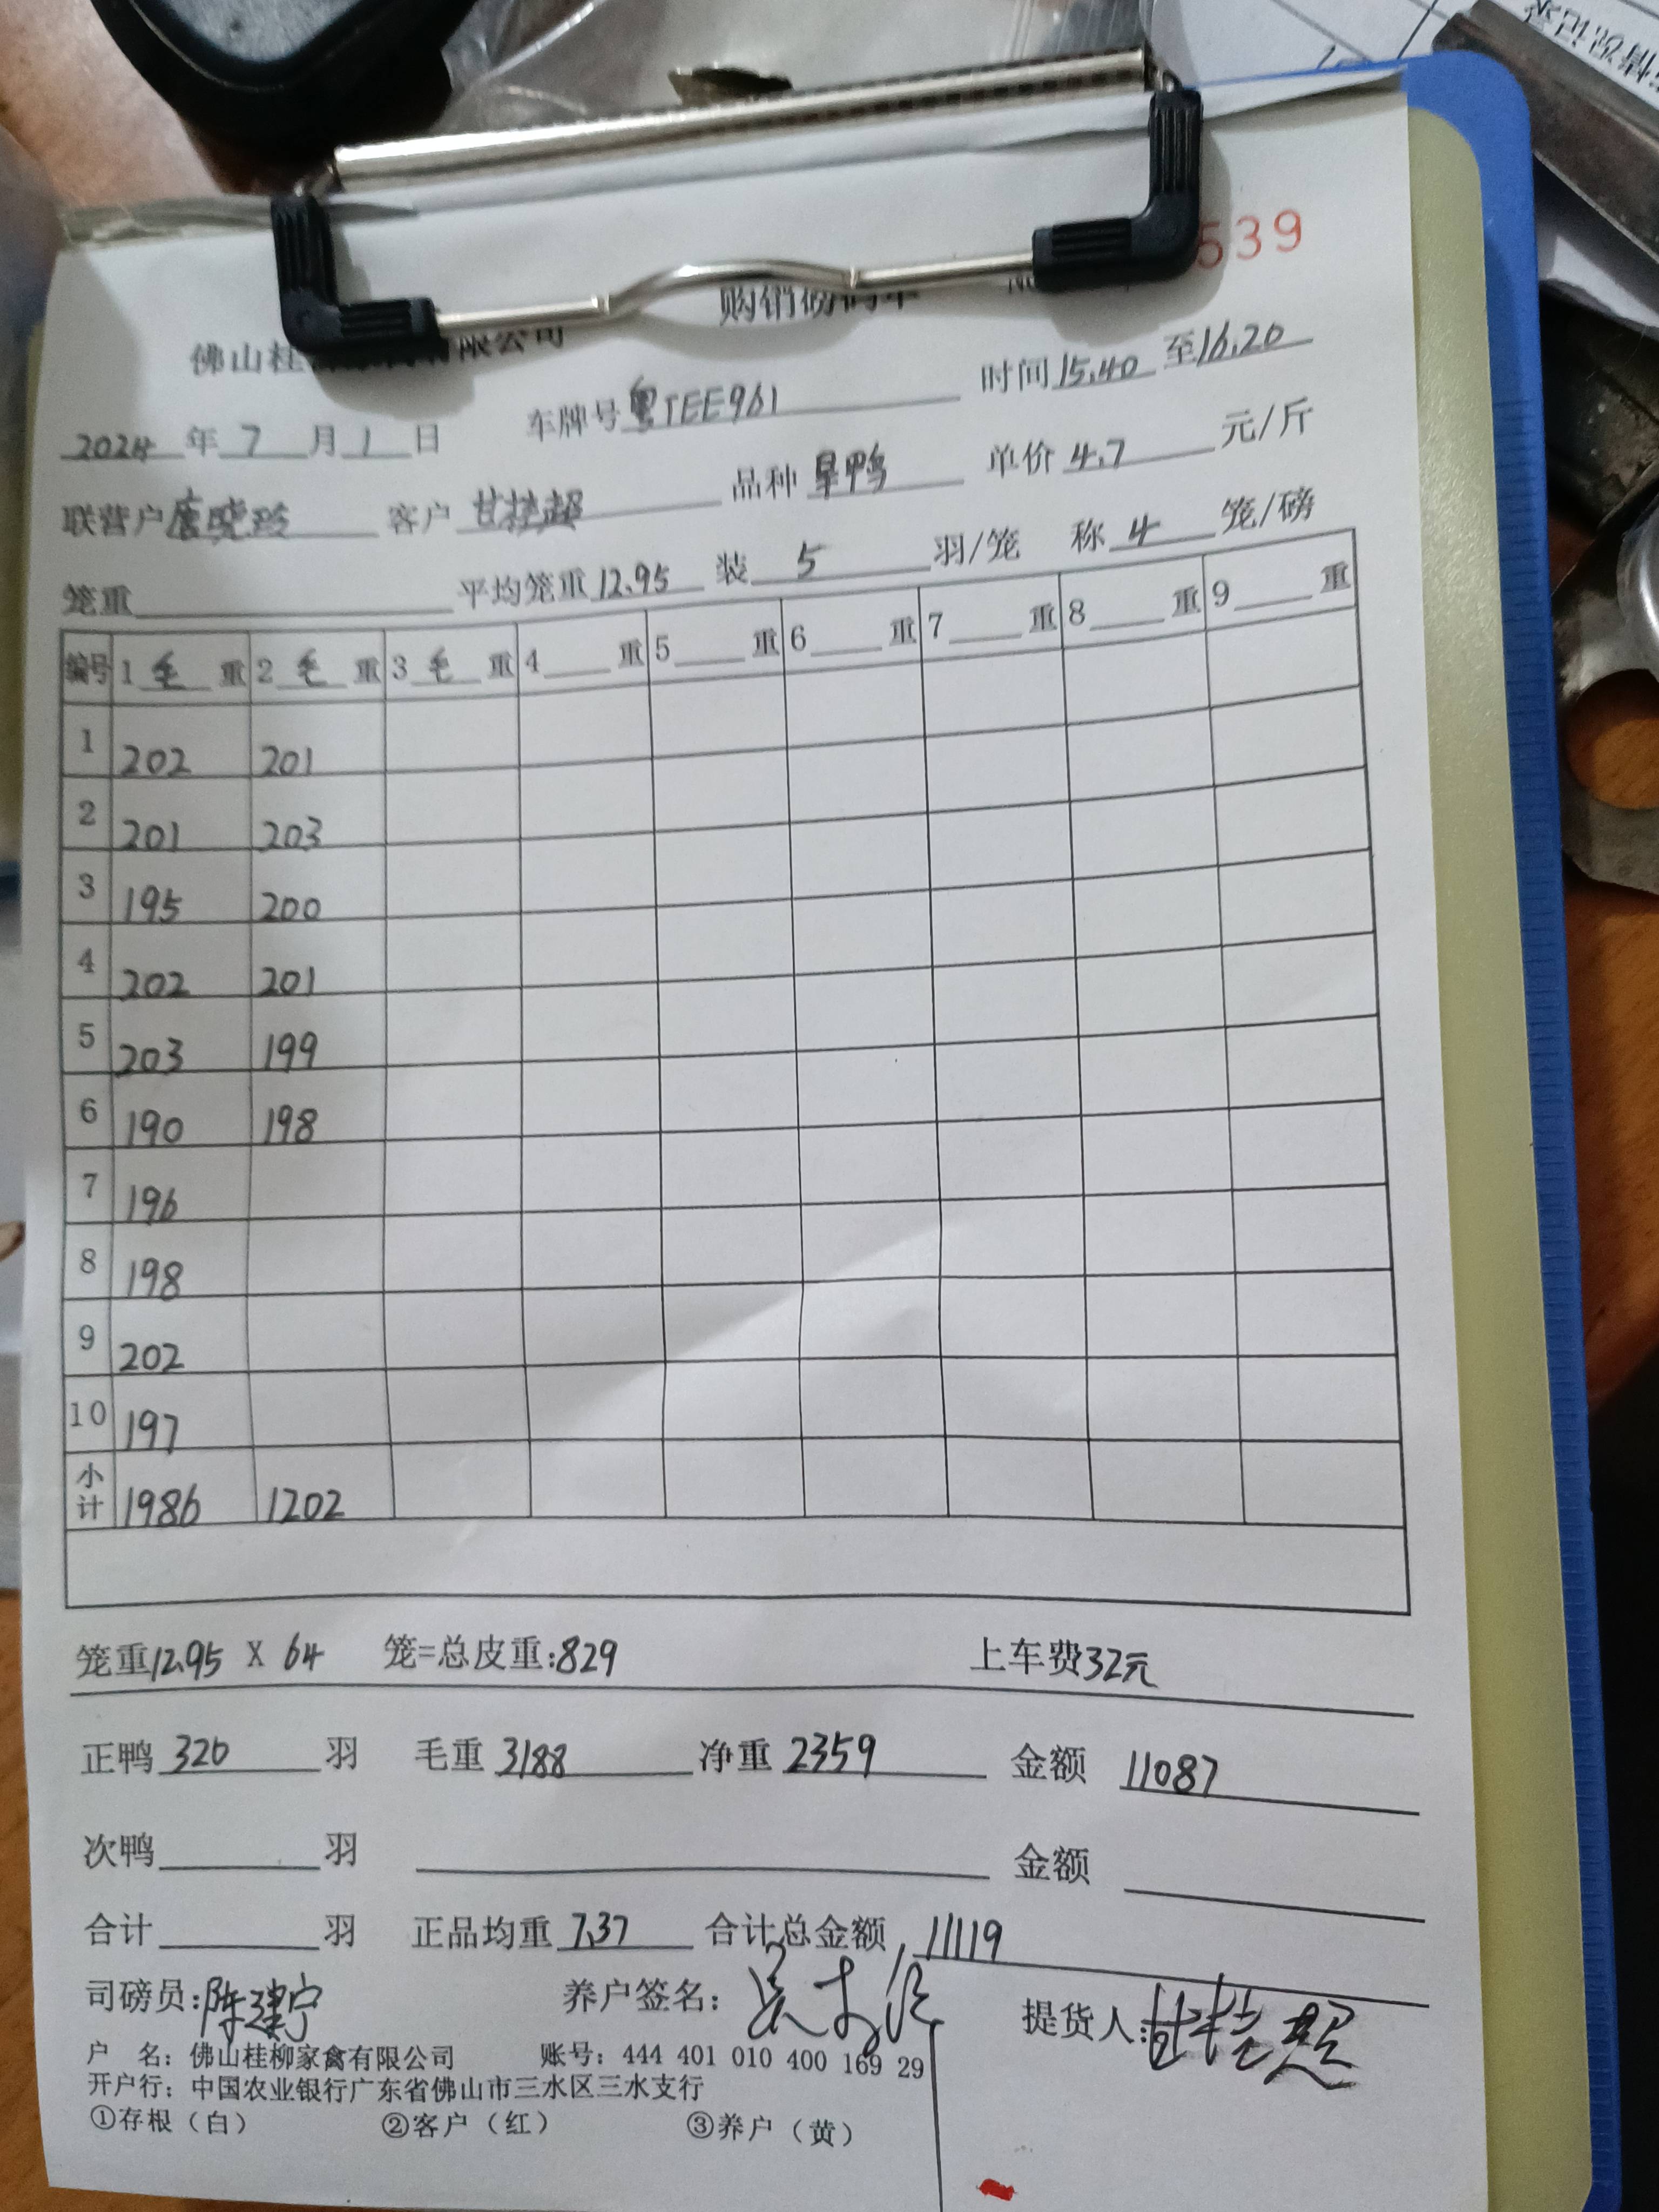 539
购销磅码单
佛山桂 有限公司
2024年7月1日 车牌号粤TEE961 时间15.40至16.20
联营户唐晓玲 客户甘桂超 品种旱鸭 单价4.7元/斤
笼重 平均笼重12.95 装5羽/笼 称4笼/磅
编号 1毛重 2毛重 3毛重 4重 5重 6重 7重 8重 9重
1 202 201
2 201 203
3 195 200
4 202 201
5 203 199
6 190 198
7 196
8 198
9 202
10 197
小计 1986 1202
笼重12.95 X 64 笼=总皮重:829 上车费32元
正鸭320羽 毛重3188 净重2359 金额11087
次鸭 羽 金额
合计 羽 正品均重7.37 合计总金额11119
司磅员:陈建宁 养户签名: 提货人:甘桂超
户 名：佛山桂柳家禽有限公司 账号：444 401 010 400 169 29
开户行：中国农业银行广东省佛山市三水区三水支行
①存根（白） ②客户（红） ③养户（黄）